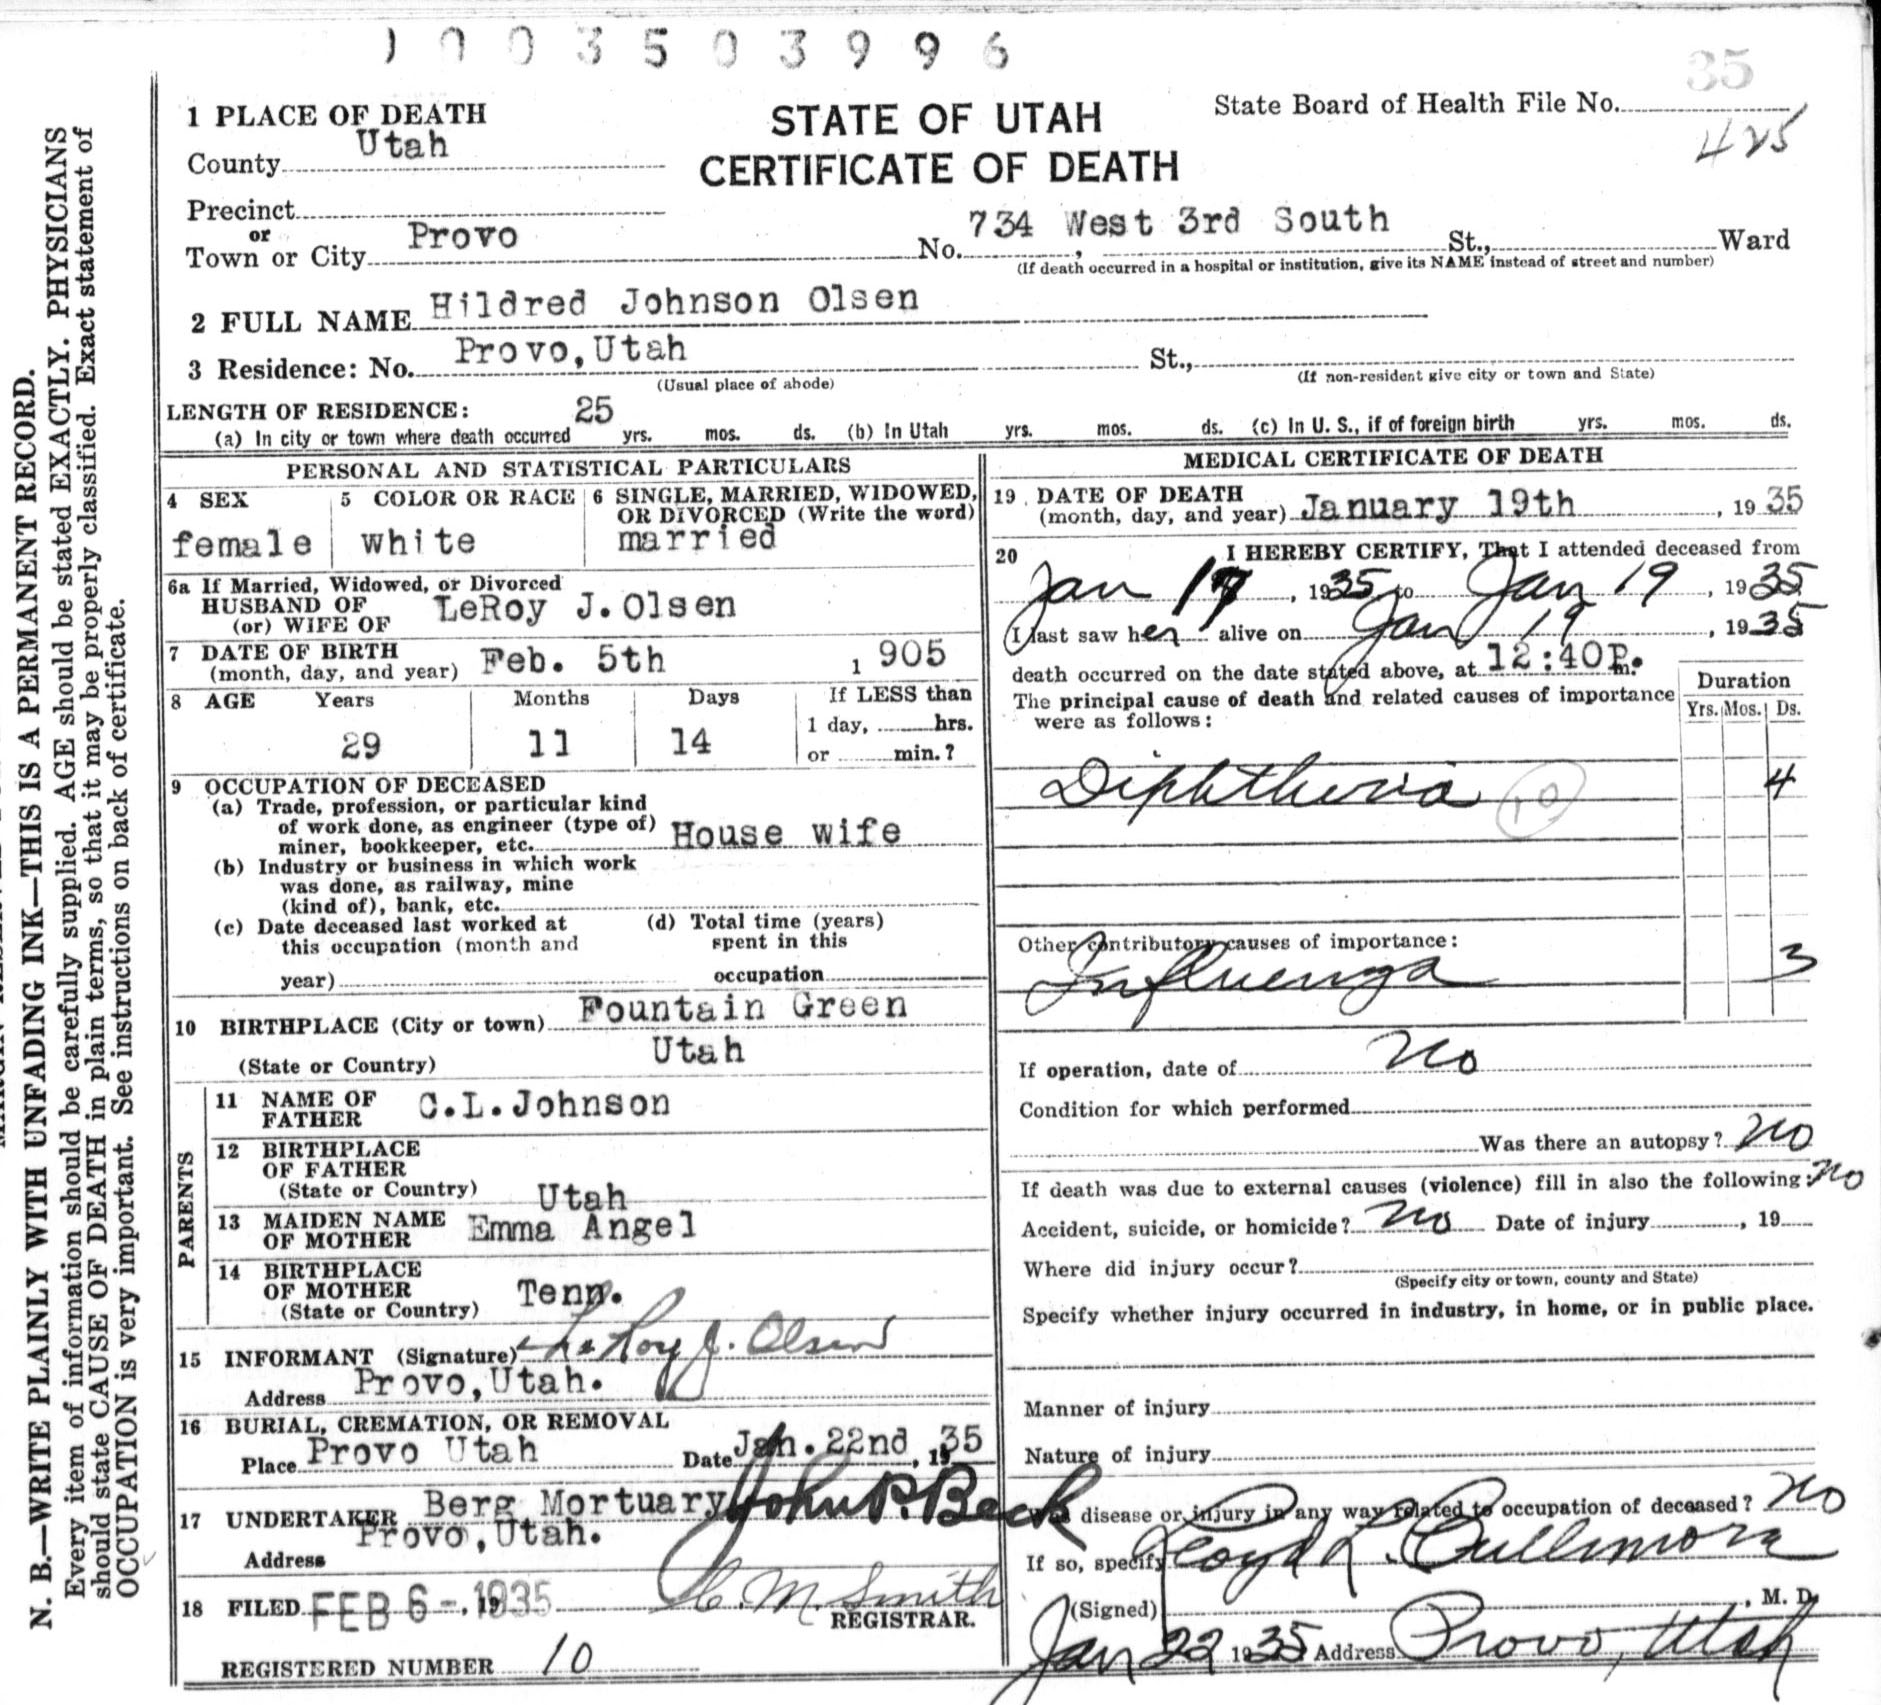 1003503996
35
1 PLACE OF DEATH
STATE OF UTAH
CERTIFICATE OF DEATH
State Board of Health File No.
425
County Utah
Precinct
or
Town or City Provo
No. 734 West 3rd South St., Ward
(If death occurred in a hospital or institution, give its NAME instead of street and number)
2 FULL NAME Hildred Johnson Olsen
3 Residence: No. Provo, Utah St.,
(Usual place of abode) (If non-resident give city or town and State)
LENGTH OF RESIDENCE:
(a) In city or town where death occurred 25 yrs. mos. ds. (b) In Utah yrs. mos. ds. (c) In U. S., if of foreign birth yrs. mos. ds.
PERSONAL AND STATISTICAL PARTICULARS
4 SEX
female
5 COLOR OR RACE
white
6 SINGLE, MARRIED, WIDOWED,
OR DIVORCED (Write the word)
married
6a If Married, Widowed, or Divorced
HUSBAND OF
(or) WIFE OF LeRoy J. Olsen
7 DATE OF BIRTH
(month, day, and year) Feb. 5th 1 905
8 AGE Years Months Days If LESS than
1 day, hrs.
29 11 14
or min.?
9 OCCUPATION OF DECEASED
(a) Trade, profession, or particular kind
of work done, as engineer (type of)
miner, bookkeeper, etc. House wife
(b) Industry or business in which work
was done, as railway, mine
(kind of), bank, etc.
(c) Date deceased last worked at
this occupation (month and
year)
(d) Total time (years)
spent in this
occupation
10 BIRTHPLACE (City or town) Fountain Green
(State or Country) Utah
PARENTS
11 NAME OF
FATHER C.L. Johnson
12 BIRTHPLACE
OF FATHER
(State or Country) Utah
13 MAIDEN NAME
OF MOTHER Emma Angel
14 BIRTHPLACE
OF MOTHER
(State or Country) Tenn.
15 INFORMANT (Signature) LeRoy J. Olsen
Address Provo, Utah.
16 BURIAL, CREMATION, OR REMOVAL
Place Provo Utah Date Jan. 22nd, 1935
17 UNDERTAKER Berg Mortuary John P. Beck
Address Provo, Utah.
18 FILED FEB 6 - 1935 C. M. Smith
REGISTRAR.
REGISTERED NUMBER 10
MEDICAL CERTIFICATE OF DEATH
19 DATE OF DEATH
(month, day, and year) January 19th, 19 35
20 I HEREBY CERTIFY, That I attended deceased from
Jan 17, 1935 to Jan 19, 1935
I last saw her alive on Jan 19, 1935
death occurred on the date stated above, at 12:40P. m.
The principal cause of death and related causes of importance
were as follows:
Duration
Yrs. Mos. Ds.
Diphtheria 10 4
Other contributory causes of importance:
Influenza 3
If operation, date of no
Condition for which performed
Was there an autopsy? no
If death was due to external causes (violence) fill in also the following: no
Accident, suicide, or homicide? no Date of injury , 19
Where did injury occur?
(Specify city or town, county and State)
Specify whether injury occurred in industry, in home, or in public place.
Manner of injury
Nature of injury
Was disease or injury in any way related to occupation of deceased? no
If so, specify
(Signed) Lloyd L. Cullimore, M. D.
Jan 22 1935 Address Provo, Utah
N. B.—WRITE PLAINLY WITH UNFADING INK—THIS IS A PERMANENT RECORD.
Every item of information should be carefully supplied. AGE should be stated EXACTLY. PHYSICIANS
should state CAUSE OF DEATH in plain terms, so that it may be properly classified. Exact statement of
OCCUPATION is very important. See instructions on back of certificate.